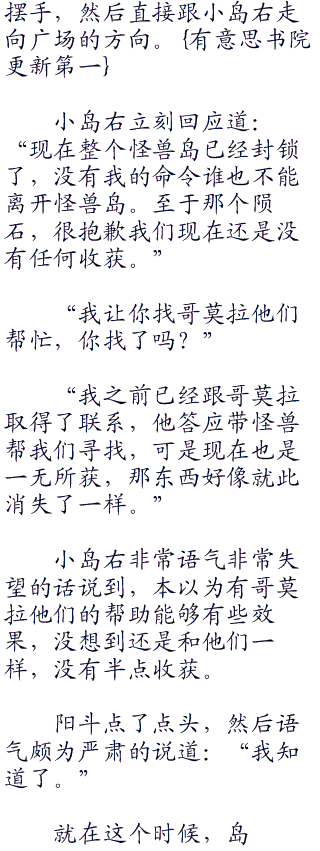 摆手，然后直接跟小岛右走
向广场的方向。{有意思书院
更新第一}
小岛右立刻回应道：
“现在整个怪兽岛已经封锁
了，没有我的命令谁也不能
离开怪兽岛。至于那个陨
石，很抱歉我们现在还是没
有任何收获。”
“我让你找哥莫拉他们
帮忙，你找了吗？”
“我之前已经跟哥莫拉
取得了联系，他答应带怪兽
帮我们寻找，可是现在也是
一无所获，那东西好像就此
消失了一样。”
小岛右非常语气非常失
望的话说到，本以为有哥莫
拉他们的帮助能够有些效
果，没想到还是和他们一
样，没有半点收获。
阳斗点了点头，然后语
气颇为严肃的说道：“我知
道了。”
就在这个时候，岛